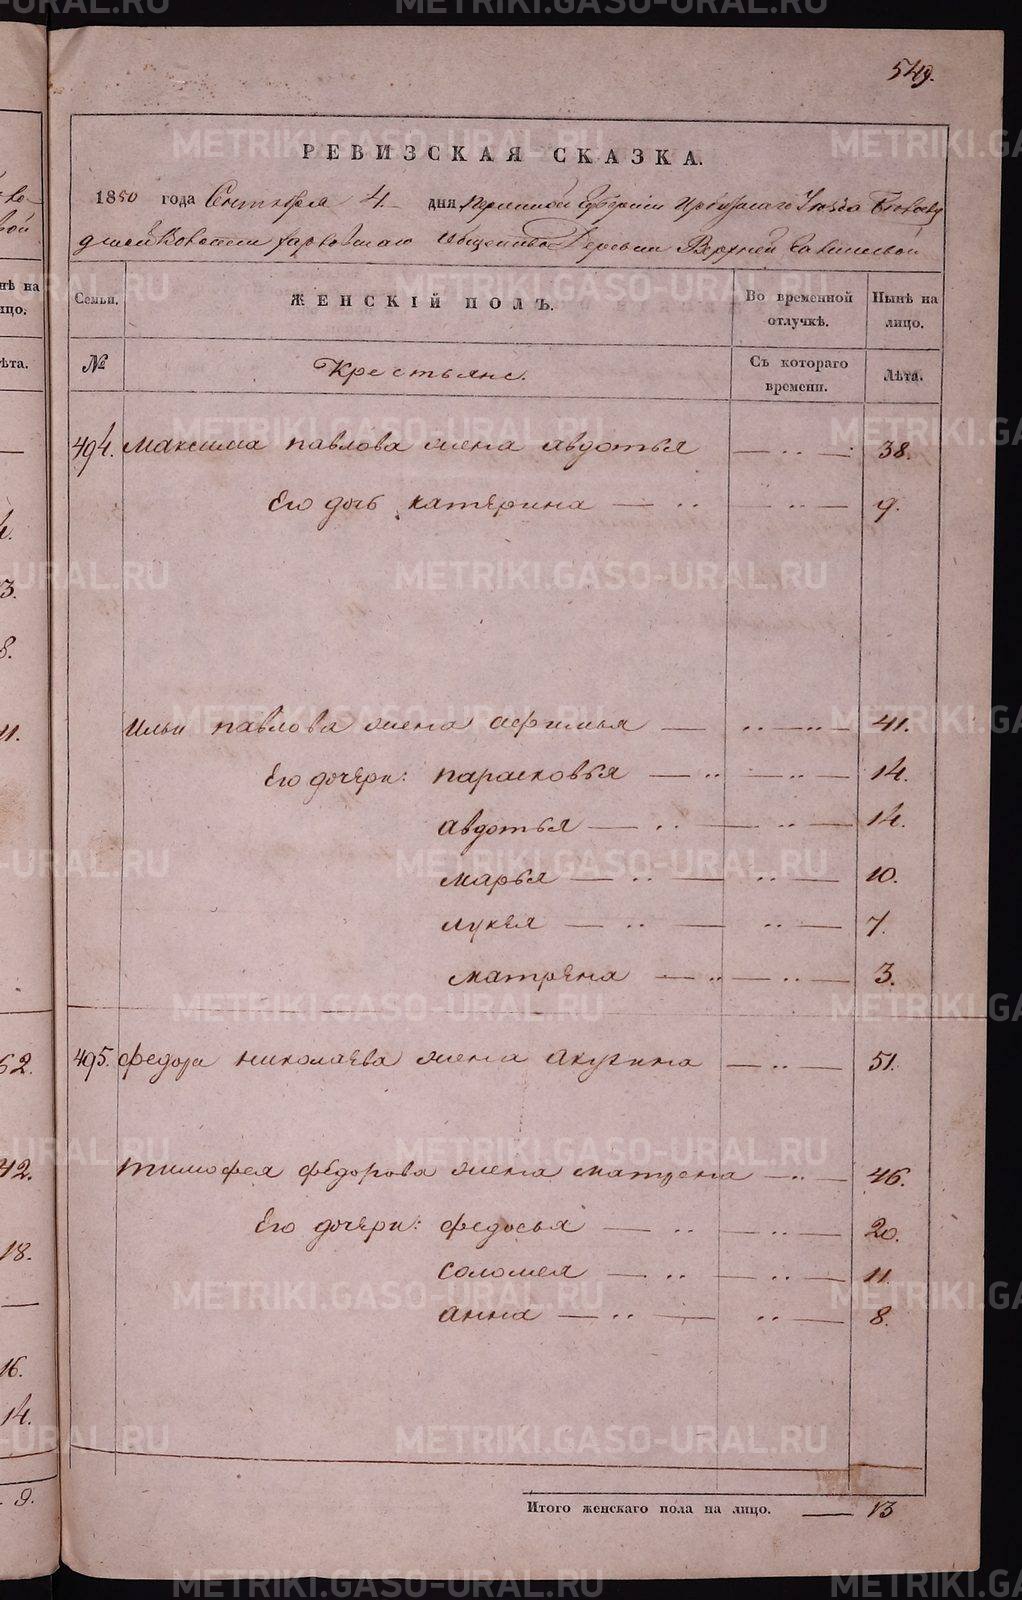 549.
РЕВИЗСКАЯ СКАЗКА.
1850 года Сентября 4 дня Пермской Губернии Ирбитскаго Уезда
волости харловскаго общества Деревни Верхней
Семьи. ЖЕНСКІЙ ПОЛЪ. Во временной отлучкѣ. Нынѣ на лицо.
№ Крестьяне. Съ котораго времени. Лѣта.
494. Максима павлова жена авдотья 38.
Его дочь катерина 9.
Ильи павлова жена афимья 41.
Его дочери: парасковья 14.
авдотья 14.
марья 10.
лукея 7.
матрена 3.
495. федора николаева жена акулина 51.
тимофея федорова жена матрена 46.
Его дочери: федосья 20.
соломея 11.
анна 8.
Итого женскаго пола на лицо. 13
METRIKI.GASO-URAL.RU